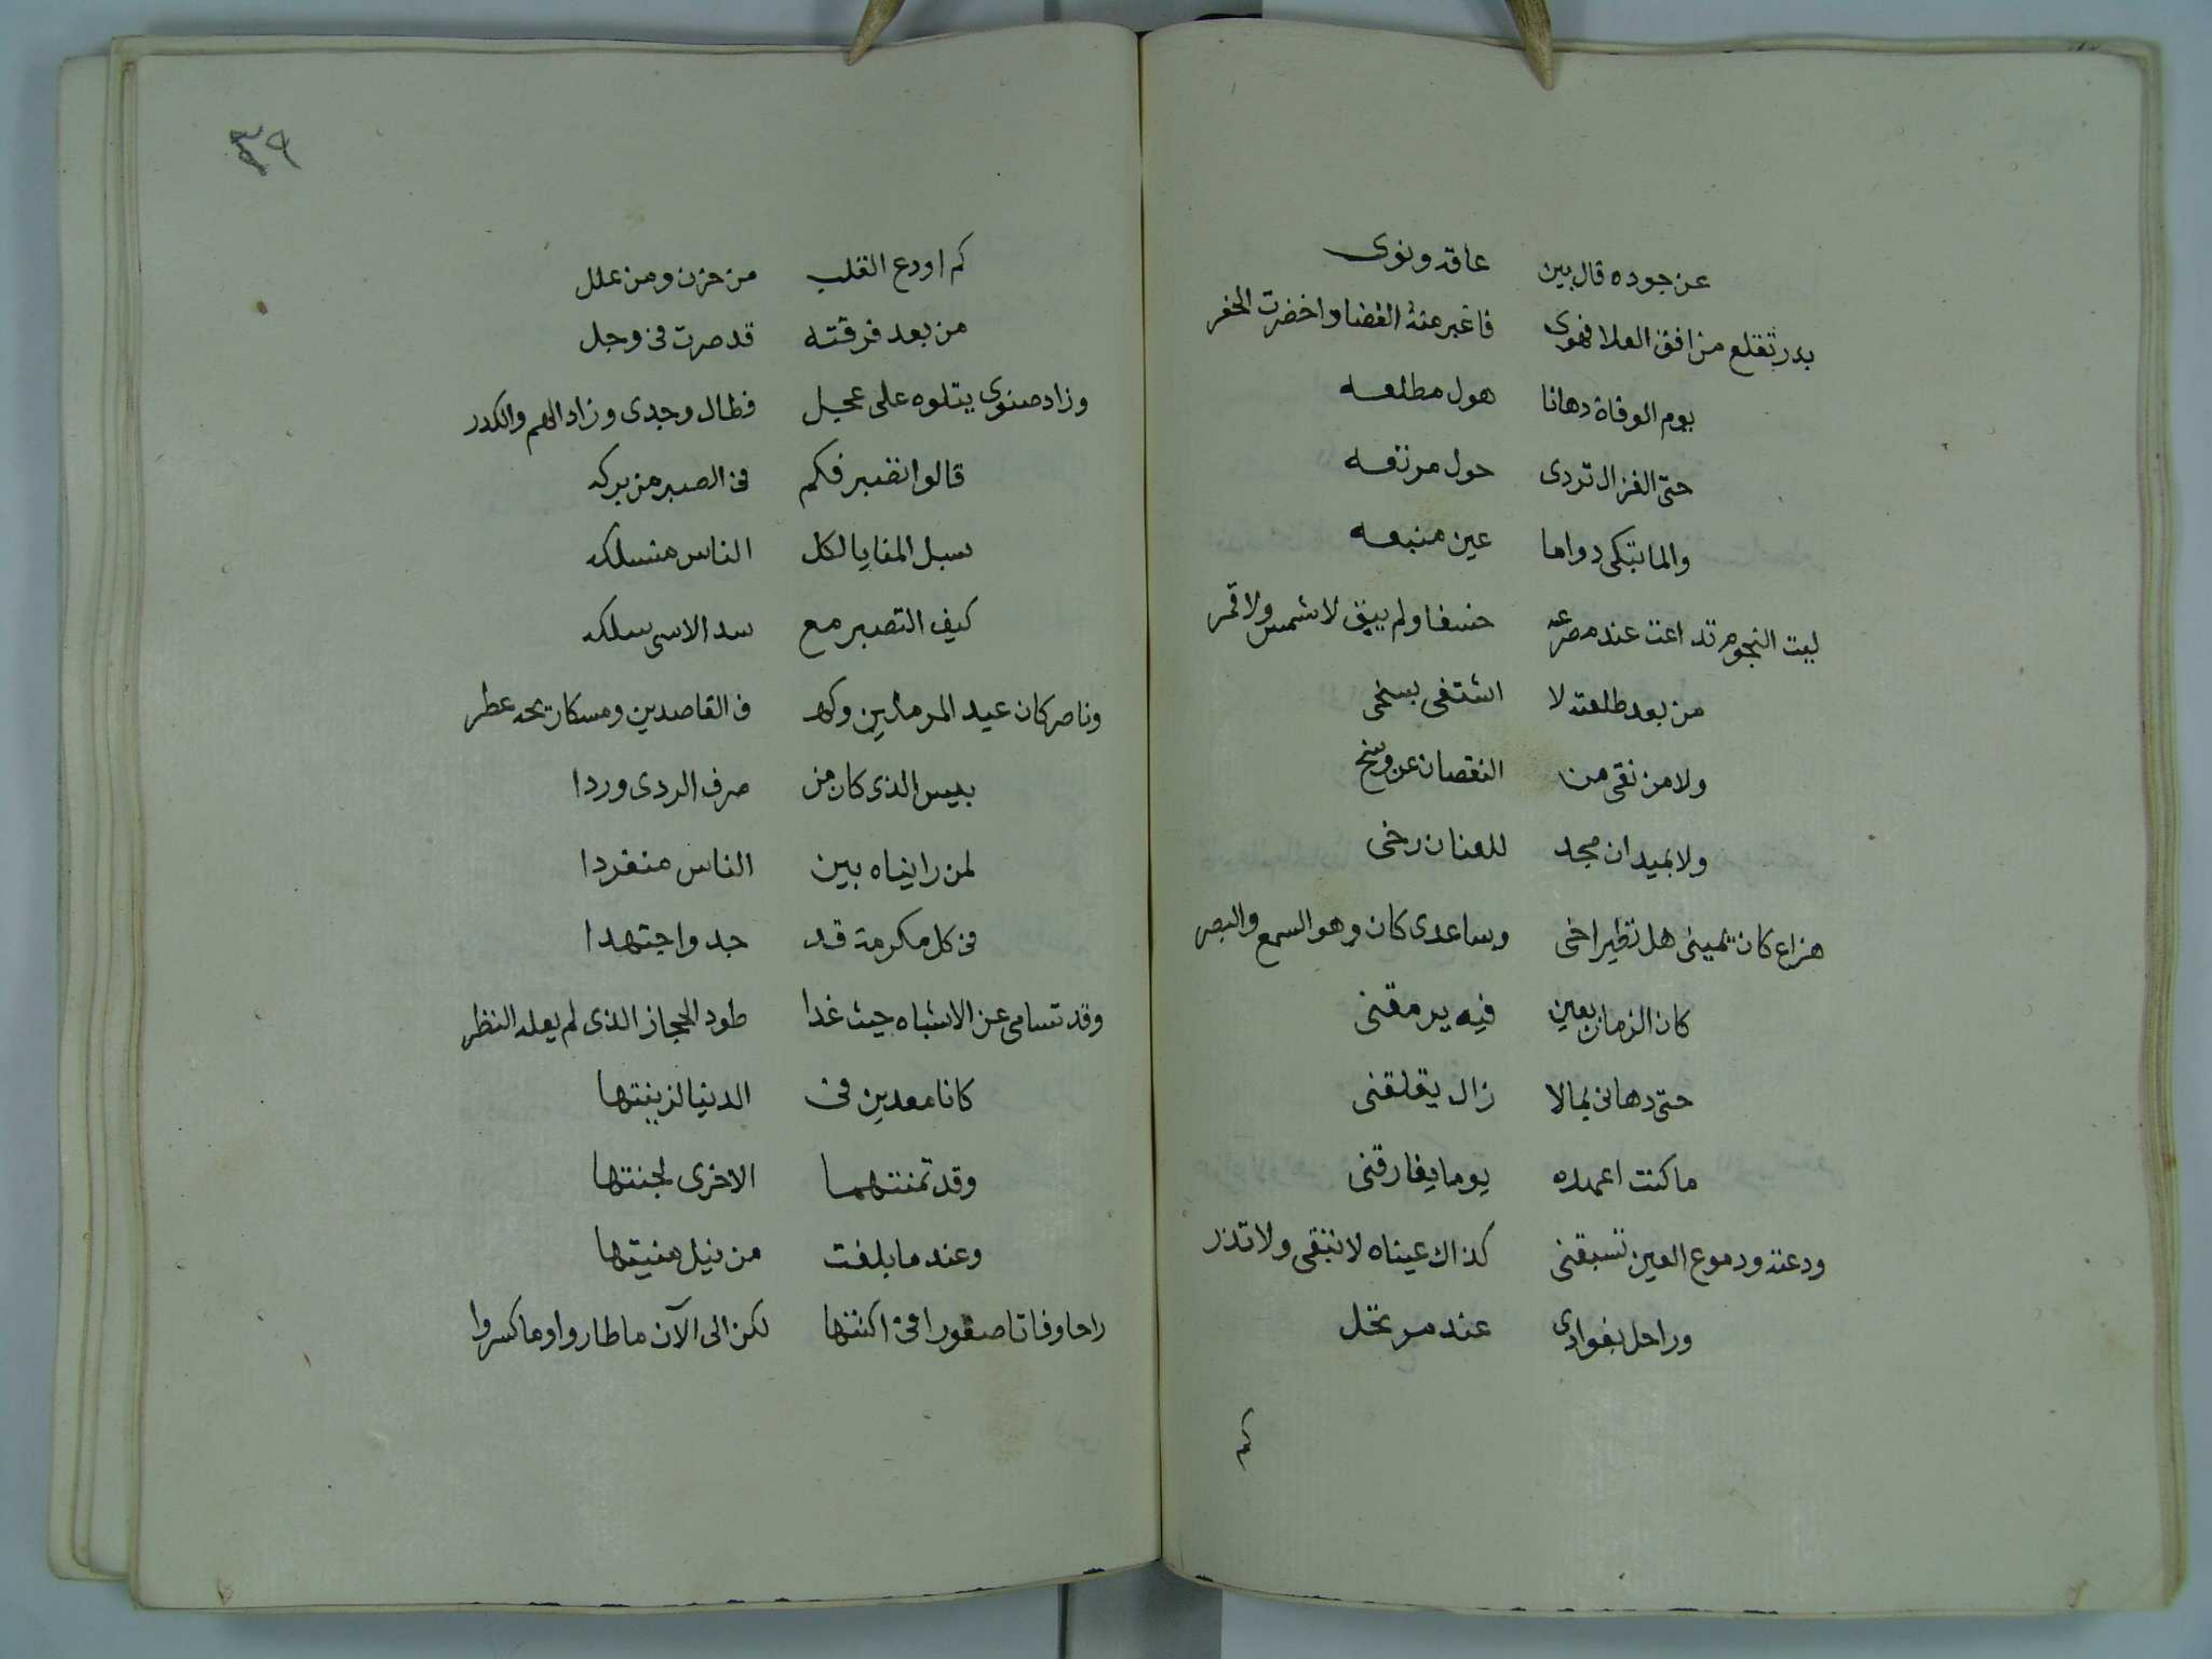 عن جوده قال بين عاقه ونوى
بدر تقلع من افق العلا فهوى فاغبر منه الفضا واخضرت الحفر
يوم الوفاة دهانا هول مطلعه
حتى الغزال تردى حول مرتعه
والما تبكى دواما عين منبعه
ليت النجوم تداعت عند مصرعه خسفا ولم يبق لا شمس ولا قمر
من بعد طلعته لا اشتفى بسخى
ولا من نقى من النقصان عن وسخ
ولا بميدان مجد للعنان رخى
هزاع كان يمينى هل نظير اخى وساعدى كان وهو السمع والبصر
كان الزمان بعين فيه يرمقنى
حتى دهانى بما لا زال يقلقنى
ما كنت اعهده يوما يفارقنى
ودعته ودموع العين تسبقنى كذاك عيناه لا تبقى ولا تذر
وراحل بفوادى عند مرتحل
كم
٣٩
كم اودع القلب من حزن ومن علل
من بعد فرقته قد صرت فى وجل
وزاد صنوى يتلوه على عجل فطال وجدى وزاد الهم والكدر
قالوا تصبر فكم فى الصبر من بركه
سبل المنايا لكل الناس منسلكه
كيف التصبر مع سد الاسى سلكه
وناصر كان عيد المرملين وكه ف القاصدين ومسكا ريحه عطر
بيس الذى كان من صرف الردى وردا
لمن رايناه بين الناس منفردا
فى كل مكرمة قد جد واجتهدا
وقد تسامى عن الاشباه حيث غدا طود الحجاز الذى لم يعله النظر
كانا معدين فى الدنيا لزينتها
وقد تمنتهما الاخرى لجنتها
وعندما بلغت من نيل منيتها
راحا وفاتا صقورا فى اكنتها لكن الى الآن ما طاروا وما كسروا